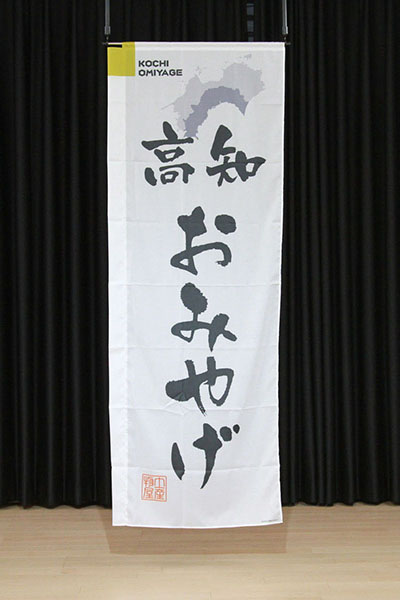 KOCHI
OMIYAGE
高知
おみやげ